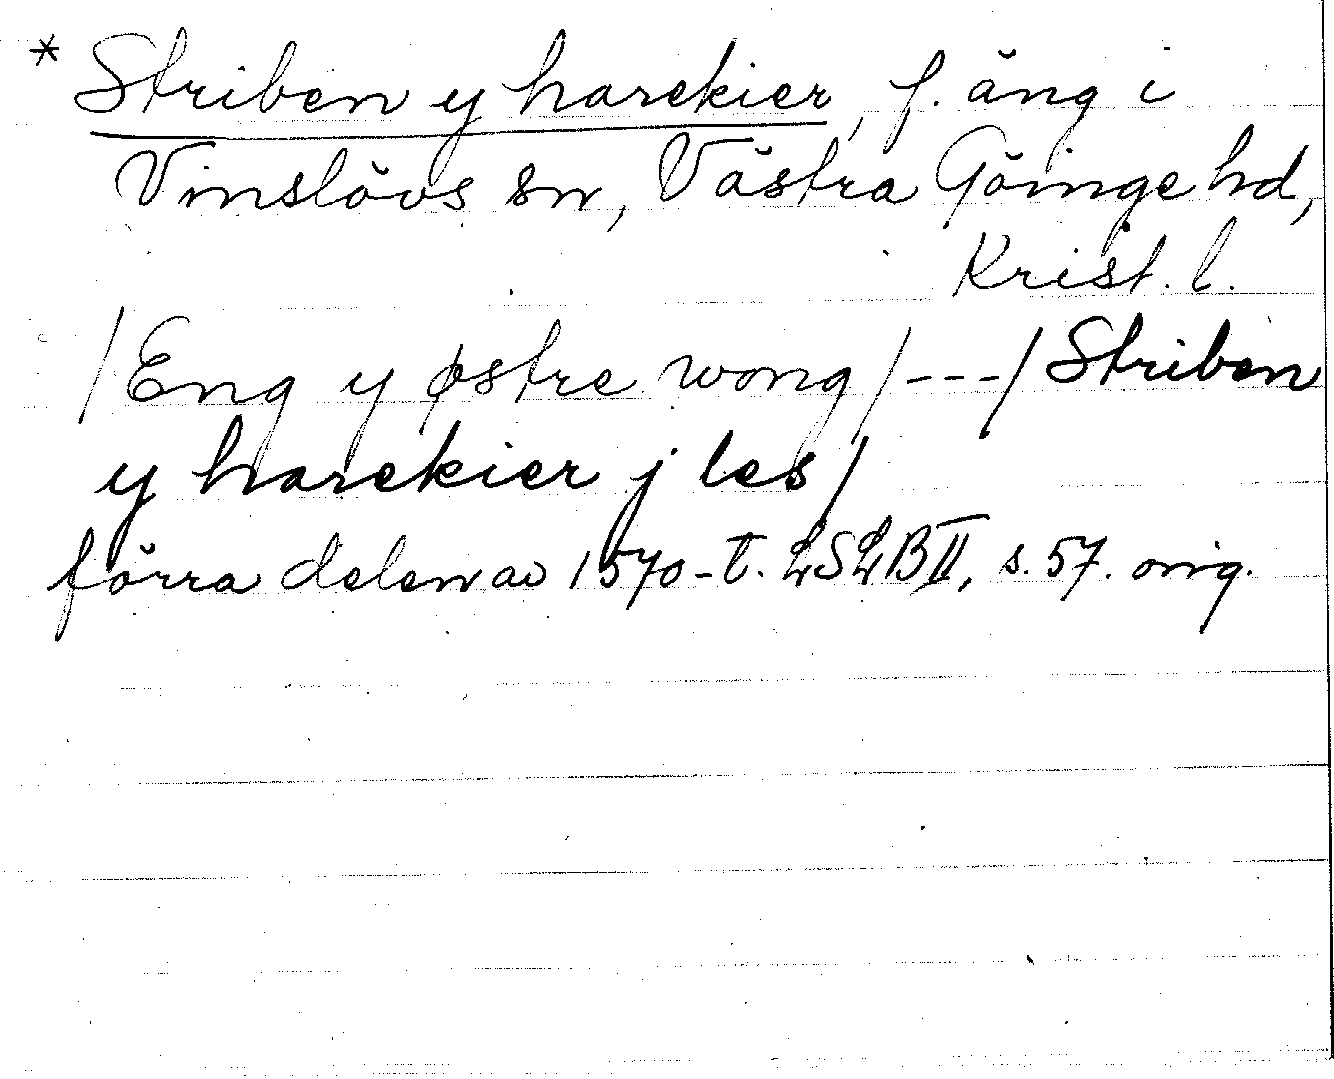 * Striben y harekier, f. äng i
Vinslövs sn, Västra Göinge hd,
Krist. l.
/Eng y østre wong/---/Striben
y harekier j les/
förra delen av 1570-t. LSLB II, s. 57. orig.